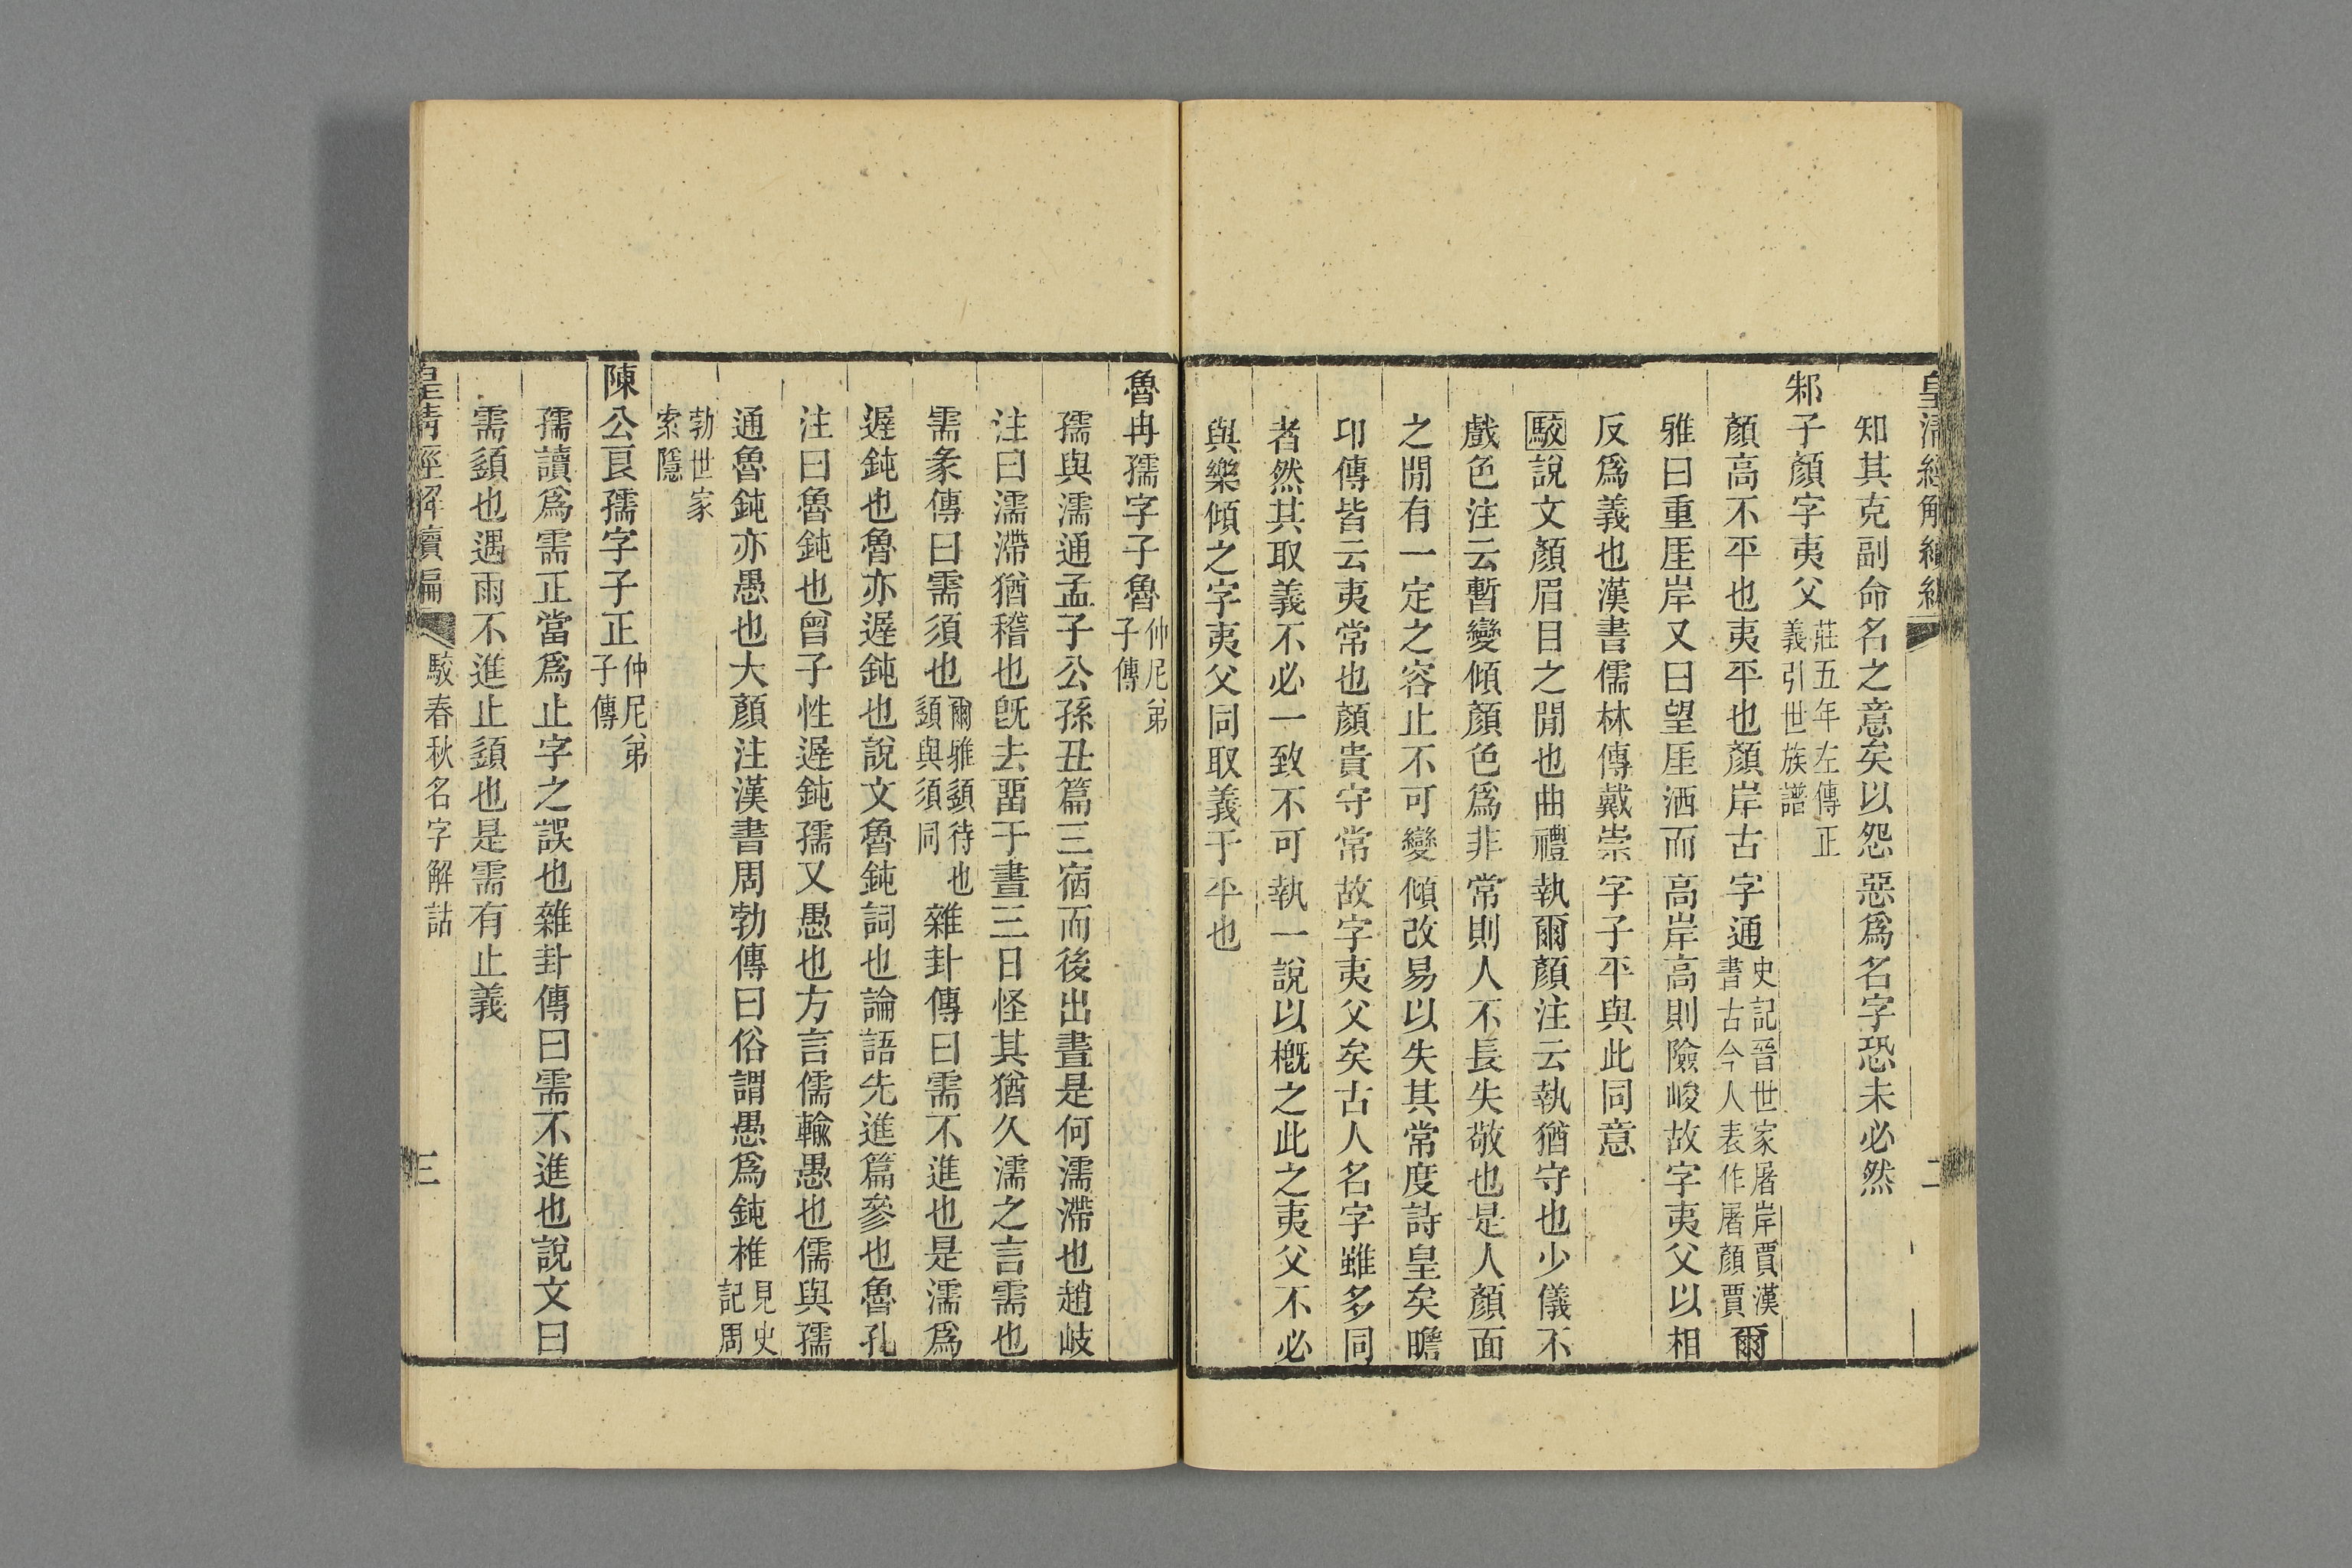 皇清經解續編
二
知其克副命名之意矣以怨惡爲名字恐未必然
邾子顏字夷父莊五年左傳正義引世族譜
顏高不平也夷平也顏岸古字通史記晉世家屠岸賈漢書古今人表作屠顏賈爾
雅曰重厓岸又曰望厓洒而高岸高則險峻故字夷父以相
反爲義也漢書儒林傳戴崇字子平與此同意
駮說文顏眉目之閒也曲禮執爾顏注云執猶守也少儀不
戲色注云暫變傾顏色爲非常則人不長失敬也是人顏面
之閒有一定之容止不可變傾改易以失其常度詩皇矣瞻
卬傳皆云夷常也顏貴守常故字夷父矣古人名字雖多同
者然其取義不必一致不可執一說以槪之此之夷父不必
與樂傾之字夷父同取義于平也
魯冉孺字子魯仲尼弟子傳
孺與濡通孟子公孫丑篇三宿而後出晝是何濡滯也趙岐
注曰濡滯猶稽也旣去畱于晝三日怪其猶久濡之言需也
需彖傳曰需須也爾雅䇓待也䇓與須同雜卦傳曰需不進也是濡爲
遲鈍也魯亦遲鈍也說文魯鈍詞也論語先進篇參也魯孔
注曰魯鈍也曾子性遲鈍孺又愚也方言儒輸愚也儒與孺
通魯鈍亦愚也大顏注漢書周勃傳曰俗謂愚爲鈍椎見史記周
勃世家索隱
陳公良孺字子正仲尼弟子傳
孺讀爲需正當爲止字之誤也雜卦傳曰需不進也說文曰
需䇓也遇雨不進止䇓也是需有止義
皇清經解續編
駮春秋名字解詁
三